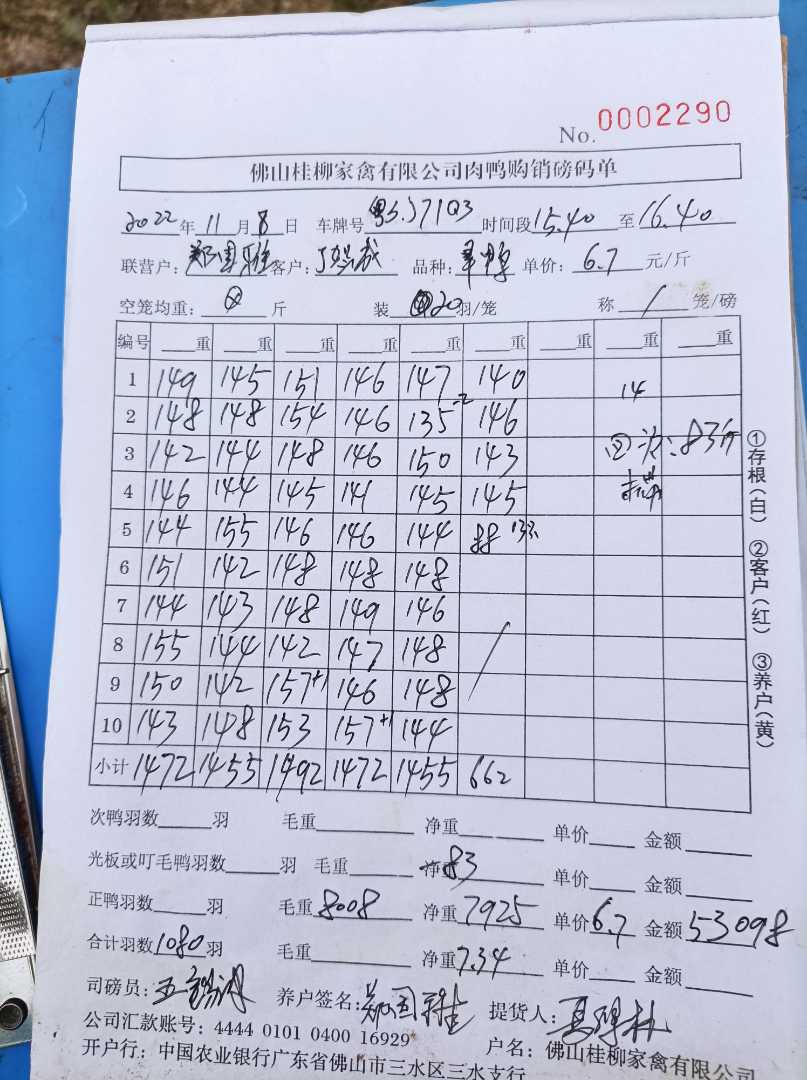 No. 0002290
佛山桂柳家禽有限公司肉鸭购销磅码单
2022年 11月 8日 车牌号 粤S.J71Q3 时间段 15.40 至 16.40
联营户: 郑国雅 客户: 品种: 单价: 6.7 元/斤
空笼均重: 斤 装 20羽/笼 称 / 笼/磅
编号 重 重 重 重 重 重 重 重 重
1 149 145 151 146 147 140 14
2 148 148 154 146 135-2 146
3 142 144 148 146 150 143 83斤
4 146 144 145 141 145 145
5 144 155 146 146 144 88
6 151 142 148 148 148
7 144 143 148 149 146
8 155 144 142 147 148
9 150 142 157+1 146 148
10 143 148 153 157+1 144
小计 1472 1455 1492 1472 1455 662
①存根(白) ②客户(红) ③养户(黄)
次鸭羽数 羽 毛重 净重 单价 金额
光板或叮毛鸭羽数 羽 毛重 净 83 单价 金额
正鸭羽数 羽 毛重 8008 净重 7925 单价 6.7 金额 53098
合计羽数 1080 羽 毛重 净重 7.34 单价 金额
司磅员: 养户签名: 郑国雅 提货人:
公司汇款账号: 4444 0101 0400 16929 户名: 佛山桂柳家禽有限公司
开户行: 中国农业银行广东省佛山市三水区三水支行